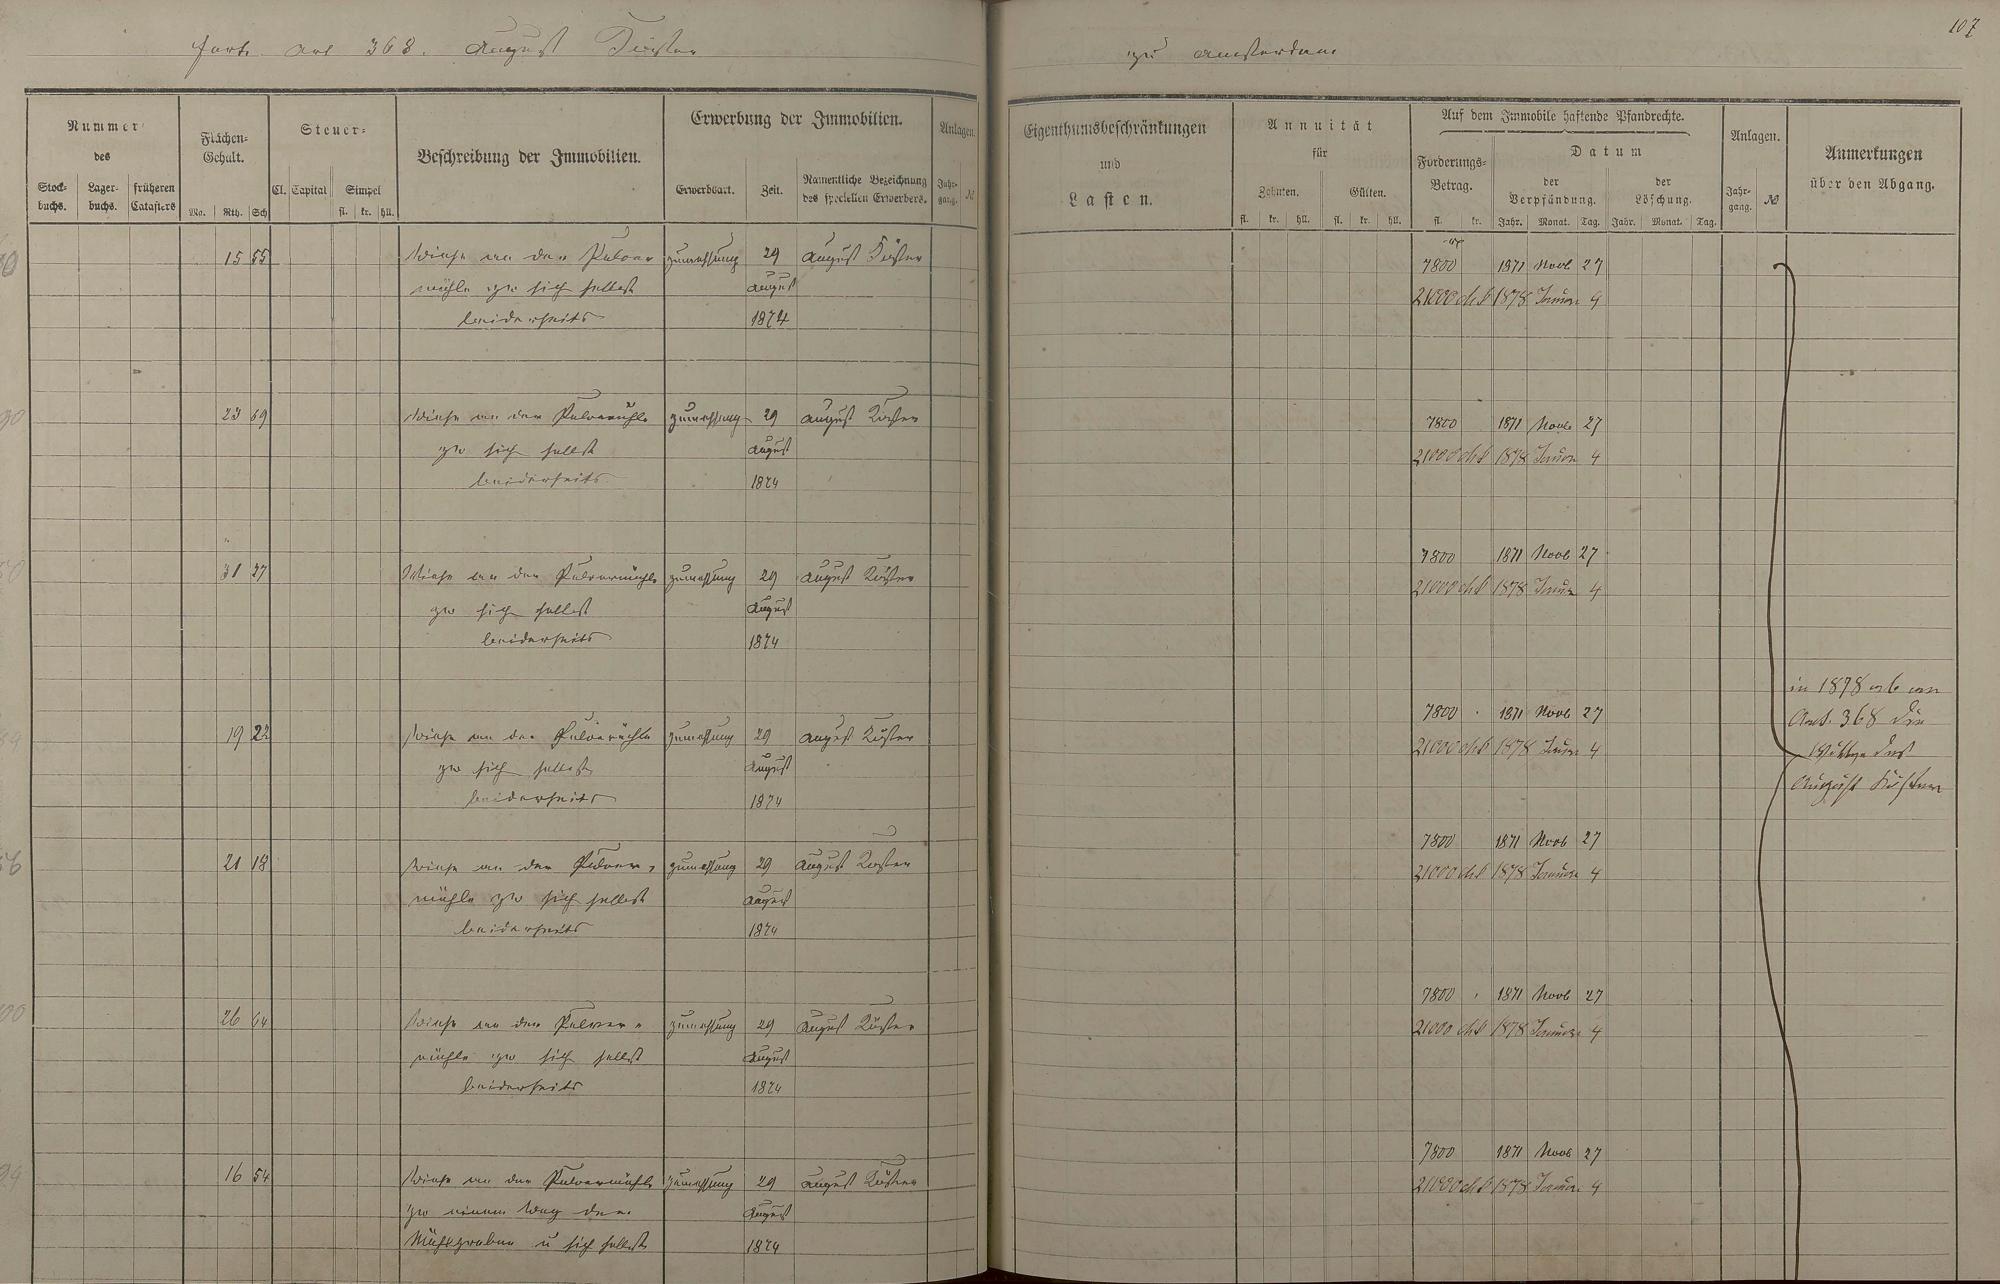 Forts. Art 368. August Küster
zu Amsterdam
107
Nummer
des
Stock-
buchs.
Lager-
buchs.
früheren
Catasters
Flächen-
Gehalt.
Mo. Rth. Sch
Steuer-
Cl. Capital Simpel
fl. kr. hll.
Beschreibung der Immobilien.
Erwerbung der Immobilien.
Erwerbsart. Zeit.
Namentliche Bezeichnung
des speciellen Erwerbers.
Anlagen.
Jahr-
gang. №
Eigenthumsbeschränkungen
und
Lasten.
Annuität
für
Zehnten. Gülten.
fl. kr. hll. fl. kr. hll.
Auf dem Immobile haftende Pfandrechte.
Forderungs-
Betrag.
fl. kr.
Datum
der
Verpfändung.
Jahr. Monat. Tag.
der
Löschung.
Jahr. Monat. Tag.
Anlagen.
Jahr-
gang. №
Anmerkungen
über den Abgang.
15 55 Wiese an der Pulver zumessung 29 August Küster
mühle zw sich selbst August
beiderseits 1874
7800 1871 Novb 27
21000 1878 Januar 4
23 69 Wiese an der Pulvermühle zumessung 29 August Küster
zw sich selbst August
beiderseits 1874
7800 1871 Novb 27
21000 1878 Januar 4
31 27 Wiese an der Pulvermühle zumessung 29 August Küster
zw sich selbst August
beiderseits 1874
7800 1871 Novb 27
21000 1878 Januar 4
19 22 Wiese an der Pulvermühle zumessung 29 August Küster
zw sich selbst August
beiderseits 1874
7800 1871 Novb 27
21000 1878 Januar 4
in 1878 ab an
Art. 368 die
Wittwe des
August Küster
21 18 Wiese an der Pulver- zumessung 29 August Küster
mühle zw sich selbst August
beiderseits 1874
7800 1871 Novb 27
21000 1878 Januar 4
26 64 Wiese an der Pulver- zumessung 29 August Küster
mühle zw sich selbst August
beiderseits 1874
7800 1871 Novb 27
21000 1878 Januar 4
16 54 Wiese an der Pulvermühle zumessung 29 August Küster
zw einem Weg dem August
Mühlgraben u sich selbst 1874
7800 1871 Novb 27
21000 1878 Januar 4